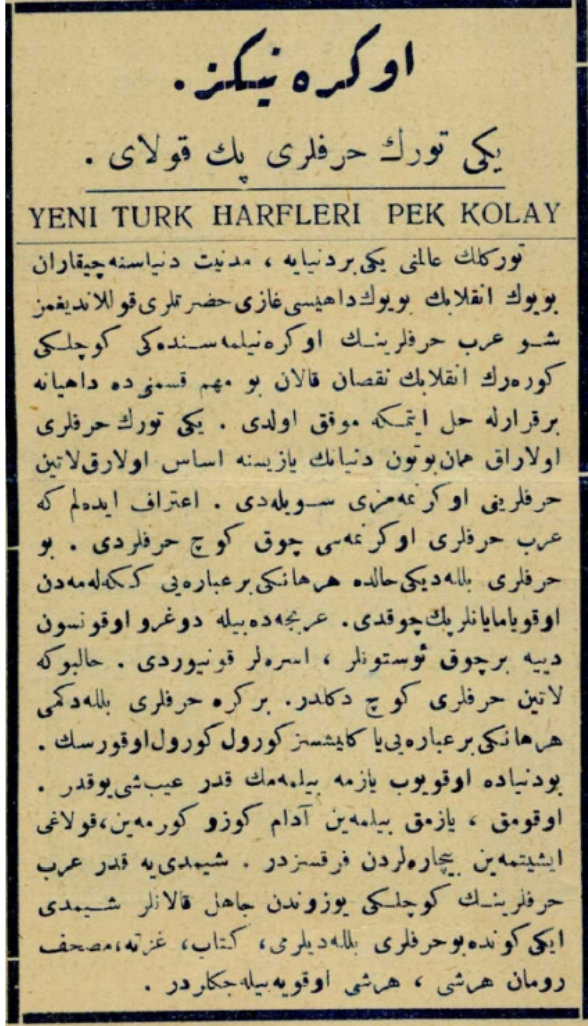 اوكره نيكز.
يكى تورك حرفلرى پك قولاى .
YENI TURK HARFLERI PEK KOLAY
توركلك عالمنى يكى بردنيايه ، مدنيت دنياسنه چيقاران
بويوك انقلابك بويوك داهيسى غازى حضرتلرى قوللانديغمز
شو عرب حرفلرينك اوكره نيلمه سنده كى كوچلكى
كوره رك انقلابك نقصان قالان بو مهم قسمنى ده داهيانه
برقرارله حل ايتمكه موفق اولدى . يكى تورك حرفلرى
اولاراق همان بوتون دنيانك يازيسنه اساس اولارق لاتين
حرفلرينى اوكرنمه مزى سويله دى . اعتراف ايده لم كه
عرب حرفلرى اوكرنمه سى چوق كوچ حرفلردى . بو
حرفلرى بلله ديكى حالده هرهانكى برعباره يى ككه له مه دن
اوقويامايانلر پك چوقدى. عربجه ده بيله دوغرو اوقونسون
دييه برچوق ئوستونلر ، اسره لر قونيوردى . حالبوكه
لاتين حرفلرى كوچ دكلدر. بركره حرفلرى بلله دكمى
هرهانكى برعباره يى يا كليشسز كورول كورول اوقورسك .
بودنياده اوقويوب يازمه بيلمه مك قدر عيب شى يوقدر .
اوقومق ، يازمق بيلمه ين آدام كوزو كورمه ين، قولاغى
ايشيتمه ين بيچاره لردن فرقسزدر . شيمدى يه قدر عرب
حرفلرينك كوچلكى يوزوندن جاهل قالانلر شيمدى
ايكى كونده بو حرفلرى بلله ديلرمى، كتاب، غزته، مصحف
رومان هرشى ، هرشى اوقويه بيله جكلردر .